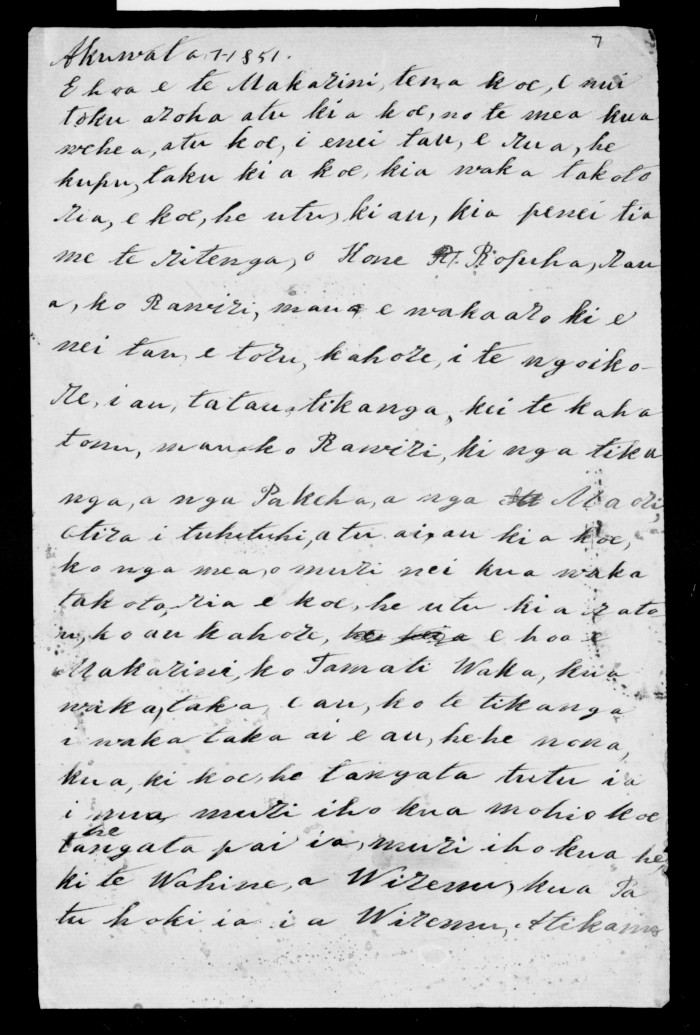 7
Akuwata, 7-1851.
E hoa e te Makarini, tena koe, e nui
toku aroha atu ki a koe, no te mea kua
wehea, atu koe, i enei tau, e rua, he
kupu, taku ki a koe, kia waka takoto
ria, e koe, he utu, ki au, kia penei tia
me te ritenga, o Hone Ropiha, rau
a, ko Rawiri, maua e wakaaro ki e
nei tau, e toru, kahore, i te ngoiko-
re, i au, tatau tikanga, kei te kaha
tonu, maua ko Rawiri, ki nga tika
nga, a nga Pakeha, a nga Maori,
otira i tuhituhi, atu ai, au ki a koe,
ko nga mea, o muri nei kua waka
takoto, ria e koe, he utu ki a rato
u, ko au kahore, e hoa e
Makarini, ko Tamati Waka, kua
waka, taka, e au, ko te tikanga
i waka taka ai e au, he he nona,
kua, ki koe, he tangata tutu ia
i mua muri iho kua mohio koe
he
tangata pai ia, muri iho kua he,
ki te Wahine, a Wiremu, kua Pa
tu hoki ia i a Wiremu,